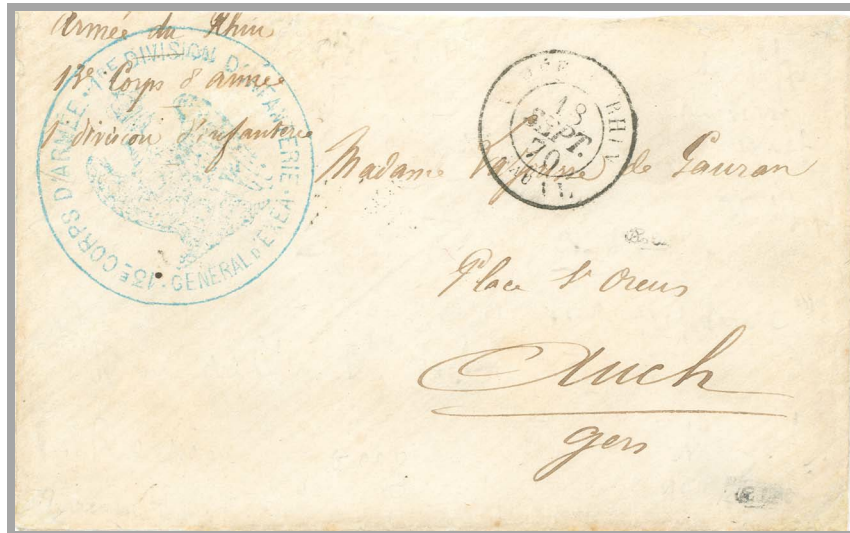 Armée du Rhin
13e Corps d'armée
1e division d'infanterie
13E CORPS D'ARMÉE. 1RE DIVISION D'INFANTERIE.
GÉNÉRAL D'EXÉA
RHIN
18
SEPT.
70
Madame de Gauran
Place St Orens
Auch
Gers